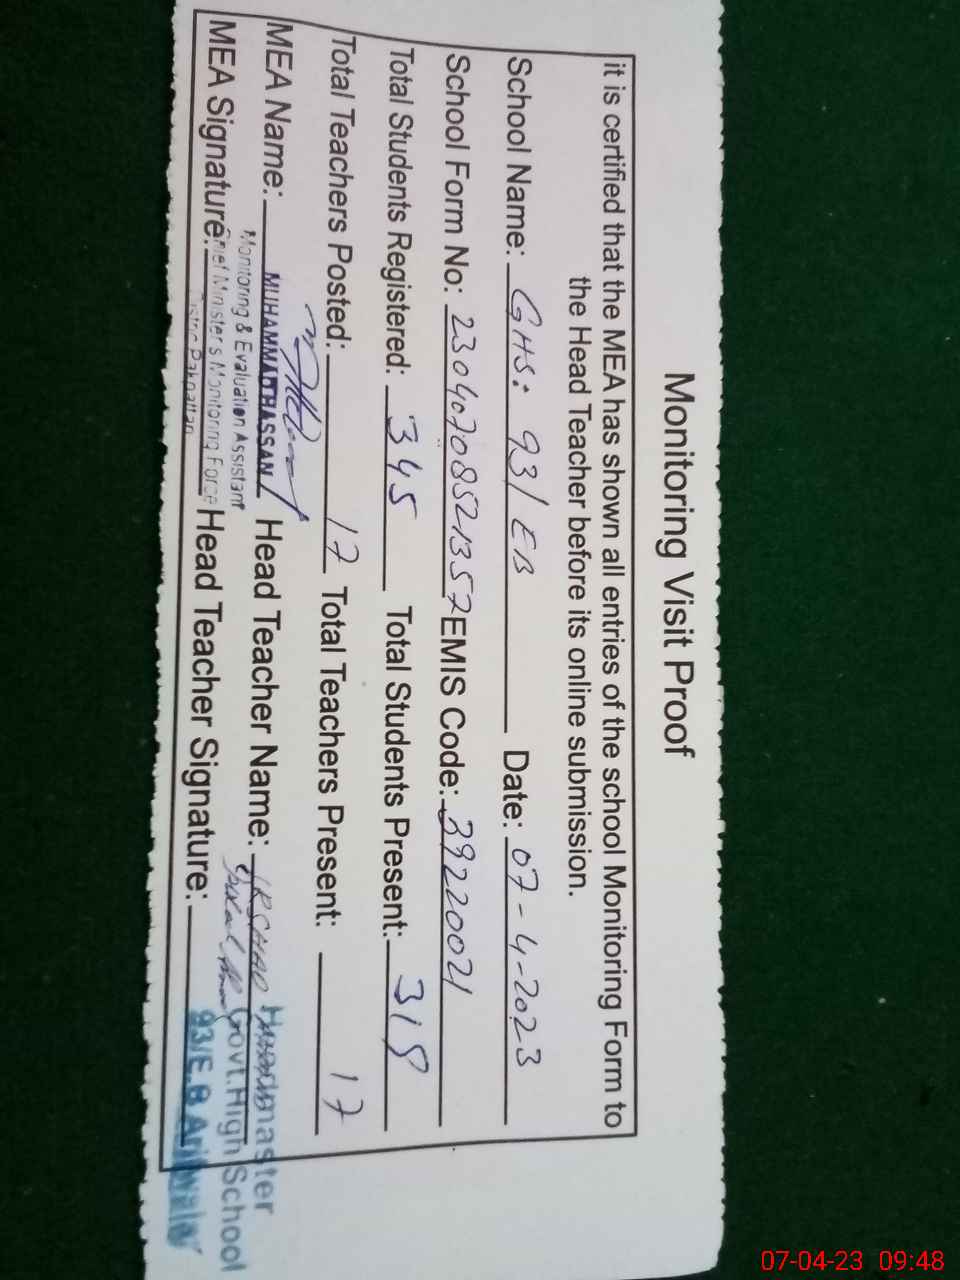 Monitoring Visit Proof
it is certified that the MEA has shown all entries of the school Monitoring Form to
the Head Teacher before its online submission.
School Name: GHS: 93/EB Date: 07-4-2023
School Form No: 23040708521357 EMIS Code: 39220021
Total Students Registered: 345 Total Students Present: 318
Total Teachers Posted: 17 Total Teachers Present: 17
MEA Name: MUHAMMAD HASSAN Head Teacher Name: IRSHAD
Monitoring & Evaluation Assistant
MEA Signature: Chief Minister's Monitoring Force Head Teacher Signature:
District Pakpattan
Headmaster
Govt. High School
93/E.B Arifwala
07-04-23 09:48